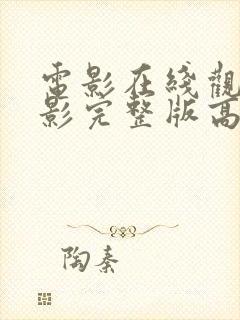 電影在綫觀
影完整版高
陶秦